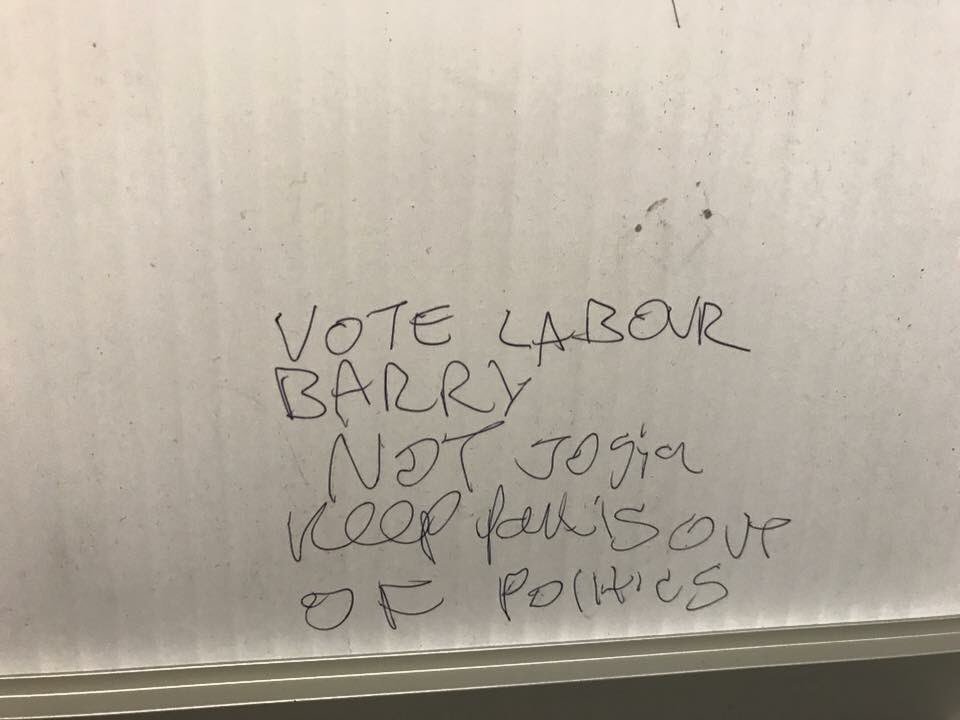 VOTE LABOUR
BARRY
NOT JOGia
Keep paki's out
OF POLITICS